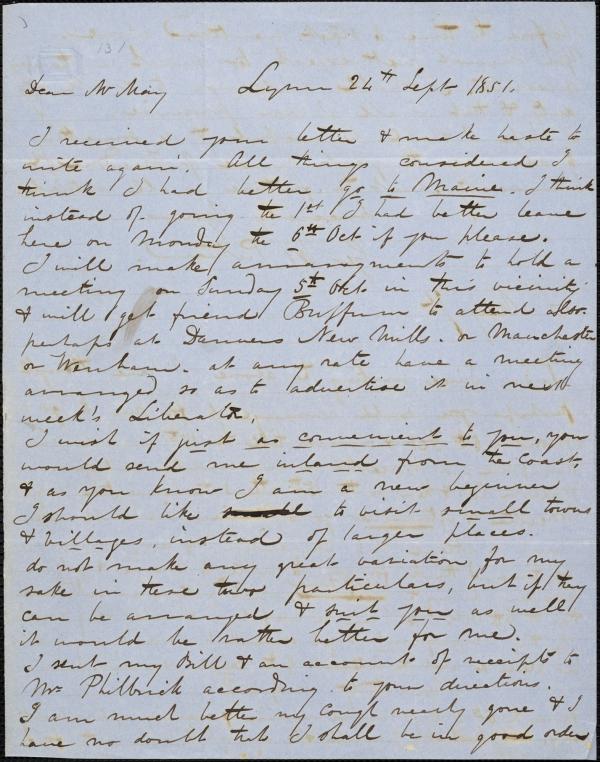 131
Dear Mr May Lynn 24th Sept 1851.
I received your letter & make haste to
write again. All things considered I
think I had better go to Maine. I think
instead of going the 1st I had better leave
here on Monday the 6th Oct if you please.
I will make arrangments to hold a
meeting on Sunday 5th Oct in this vicinity
& will get friend Buffum to attend also.
perhaps at Danvers New Mills. or Manchester
or Wenham. at any rate have a meeting
arranged so as to advertise it in next
week's Liberator.
I wish if just as convenient to you, you
would send me inland from the coast,
& as you know I am a new beginner
I should like to visit small towns
& villages, instead of larger places.
do not make any great variation for my
sake in these two particulars, but if they
can be arranged & suit you as well
it would be rather better for me.
I sent my Bill & an account of receipts to
Mr Philbrick according to your directions.
I am much better my cough nearly gone & I
have no doubt that I shall be in good order